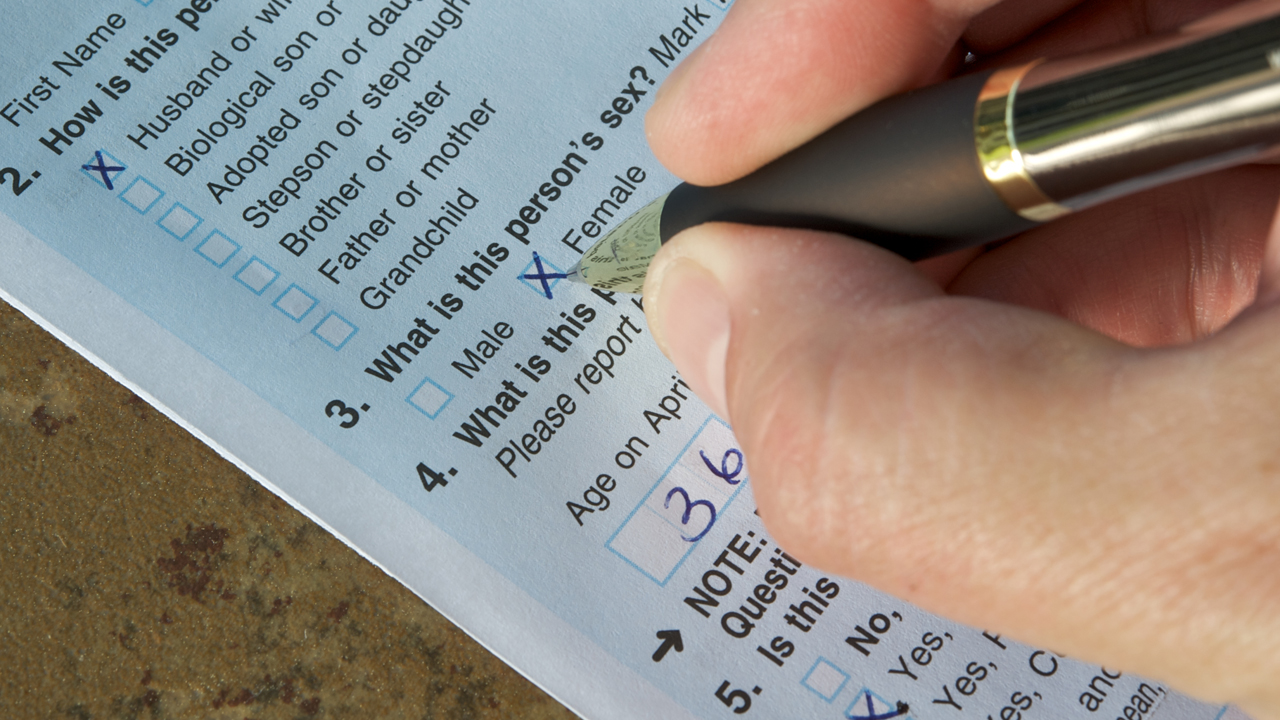 First Name
2. How is this
Husband or
Biological son or
Adopted son or
Stepson or
Brother or sister
Father or mother
Grandchild
3. What is this person's sex? Mark
Male X Female
4. What is this
Please report
Age on April
36
NOTE:
5. Is this
No,
Yes,
Yes,
and